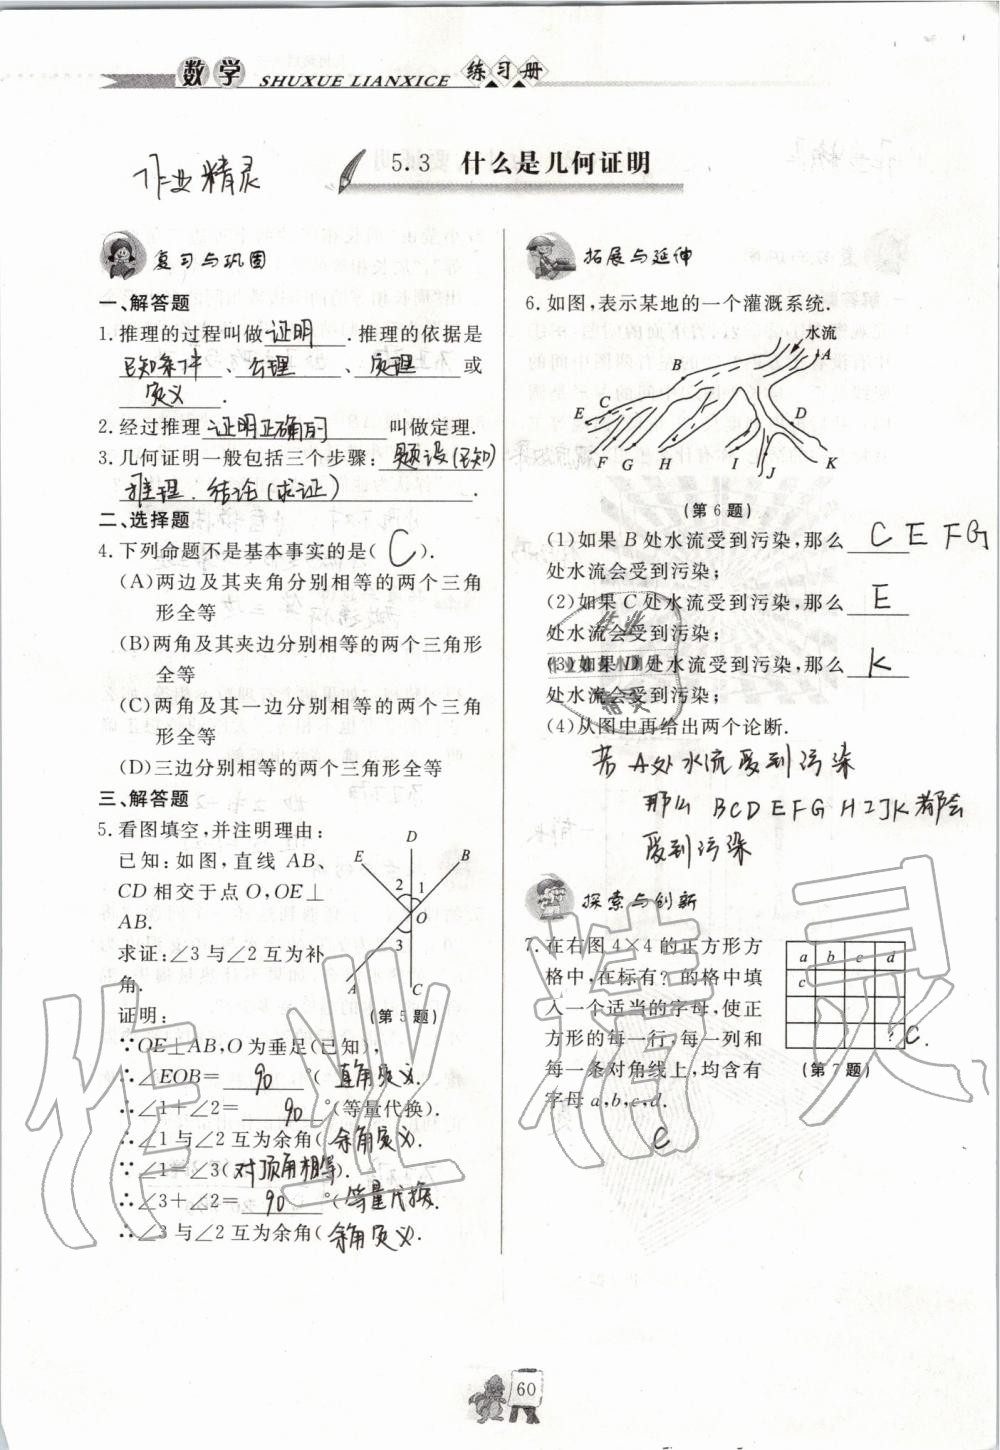 数学
SHUXUE LIANXICE
练习册
作业精灵
5.3 什么是几何证明
复习与巩固
一、解答题
1.推理的过程叫做 证明 .推理的依据是
已知条件、公理、定理或
定义.
2.经过推理 证明正确的 叫做定理.
3.几何证明一般包括三个步骤: 题设(已知)
推理.结论(求证).
二、选择题
4.下列命题不是基本事实的是( C ).
(A)两边及其夹角分别相等的两个三角
形全等
(B)两角及其夹边分别相等的两个三角形
全等
(C)两角及其一边分别相等的两个三角
形全等
(D)三边分别相等的两个三角形全等
三、解答题
5.看图填空,并注明理由:
已知:如图,直线 AB、
CD相交于点O,OE⊥
AB.
求证:∠3与∠2互为补
角.
证明:
D
E
B
2 1
O
3
A
C
(第5题)
∵OE⊥AB,O为垂足(已知),
∴∠EOB= 90 °(直角定义.
∴∠1+∠2= 90 °(等量代换).
∴∠1与∠2互为余角(余角定义.
∵∠1=∠3(对顶角相等).
∴∠3+∠2= 90 °(等量代换.
∴∠3与∠2互为余角(余角定义.
拓展与延伸
6.如图,表示某地的一个灌溉系统.
水流
A
B
E
C
D
F G H I J K
(第6题)
(1)如果B处水流受到污染,那么 C E F G
处水流会受到污染;
(2)如果C处水流受到污染,那么 E
处水流会受到污染;
(3)如果D处水流受到污染,那么 K
处水流会受到污染;
(4)从图中再给出两个论断.
若A处水流受到污染
那么 BCDEFGHIJK都会
受到污染
探索与创新
7.在右图4×4的正方形方
格中,在标有?的格中填
入一个适当的字母,使正
方形的每一行,每一列和
每一条对角线上,均含有
字母a,b,c,d.
c
a b c d
c
? C.
(第7题)
作业精灵
60